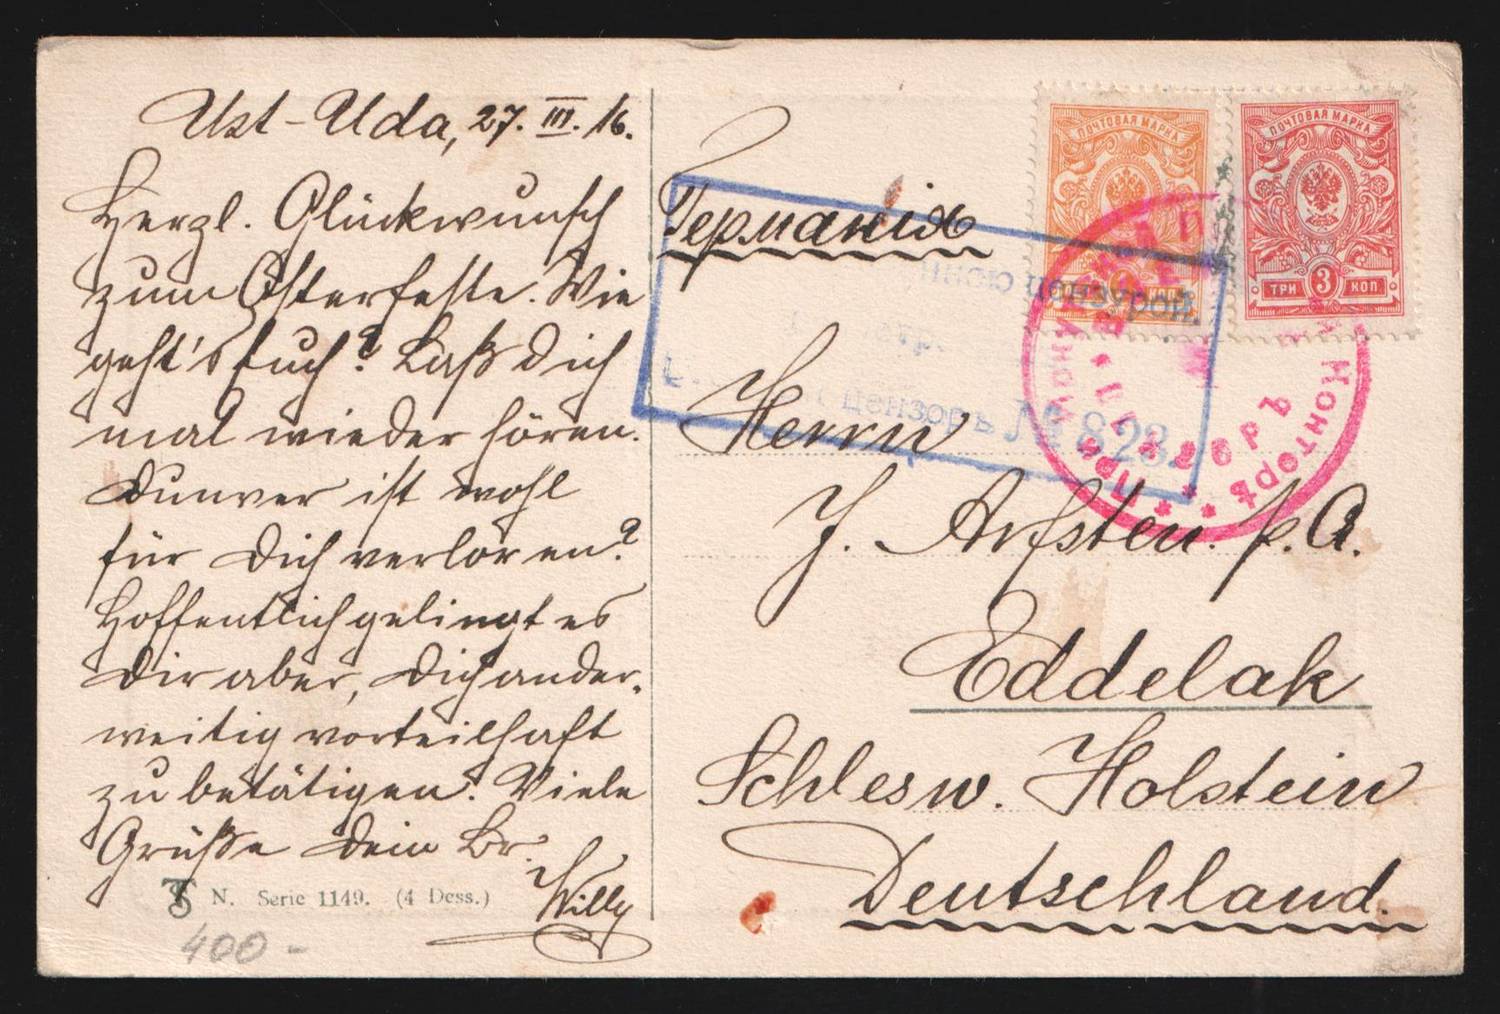 Ust-Uda, 27. III. 16.
Herzl. Glückwunsch
zum Osterfeste. Wie
geht's Euch? Laß Dich
mal wieder hören.
ist wohl
für Dich verloren?
Hoffentlich gelingt es
Dir aber, Dich ander-
weitig vorteilhaft
zu betätigen. Viele
Grüße Dein Br.
Willy
N. Serie 1149. (4 Dess.)
400 -
Германія
ПОЧТОВАЯ МАРКА
КОП.
ПОЧТОВАЯ МАРКА
ТРИ 3 КОП.
цензурой.
цензоръ № 823.
Конторѣ
Herrn
J. Arfsten. p. A.
Eddelak
Schlesw. Holstein
Deutschland.